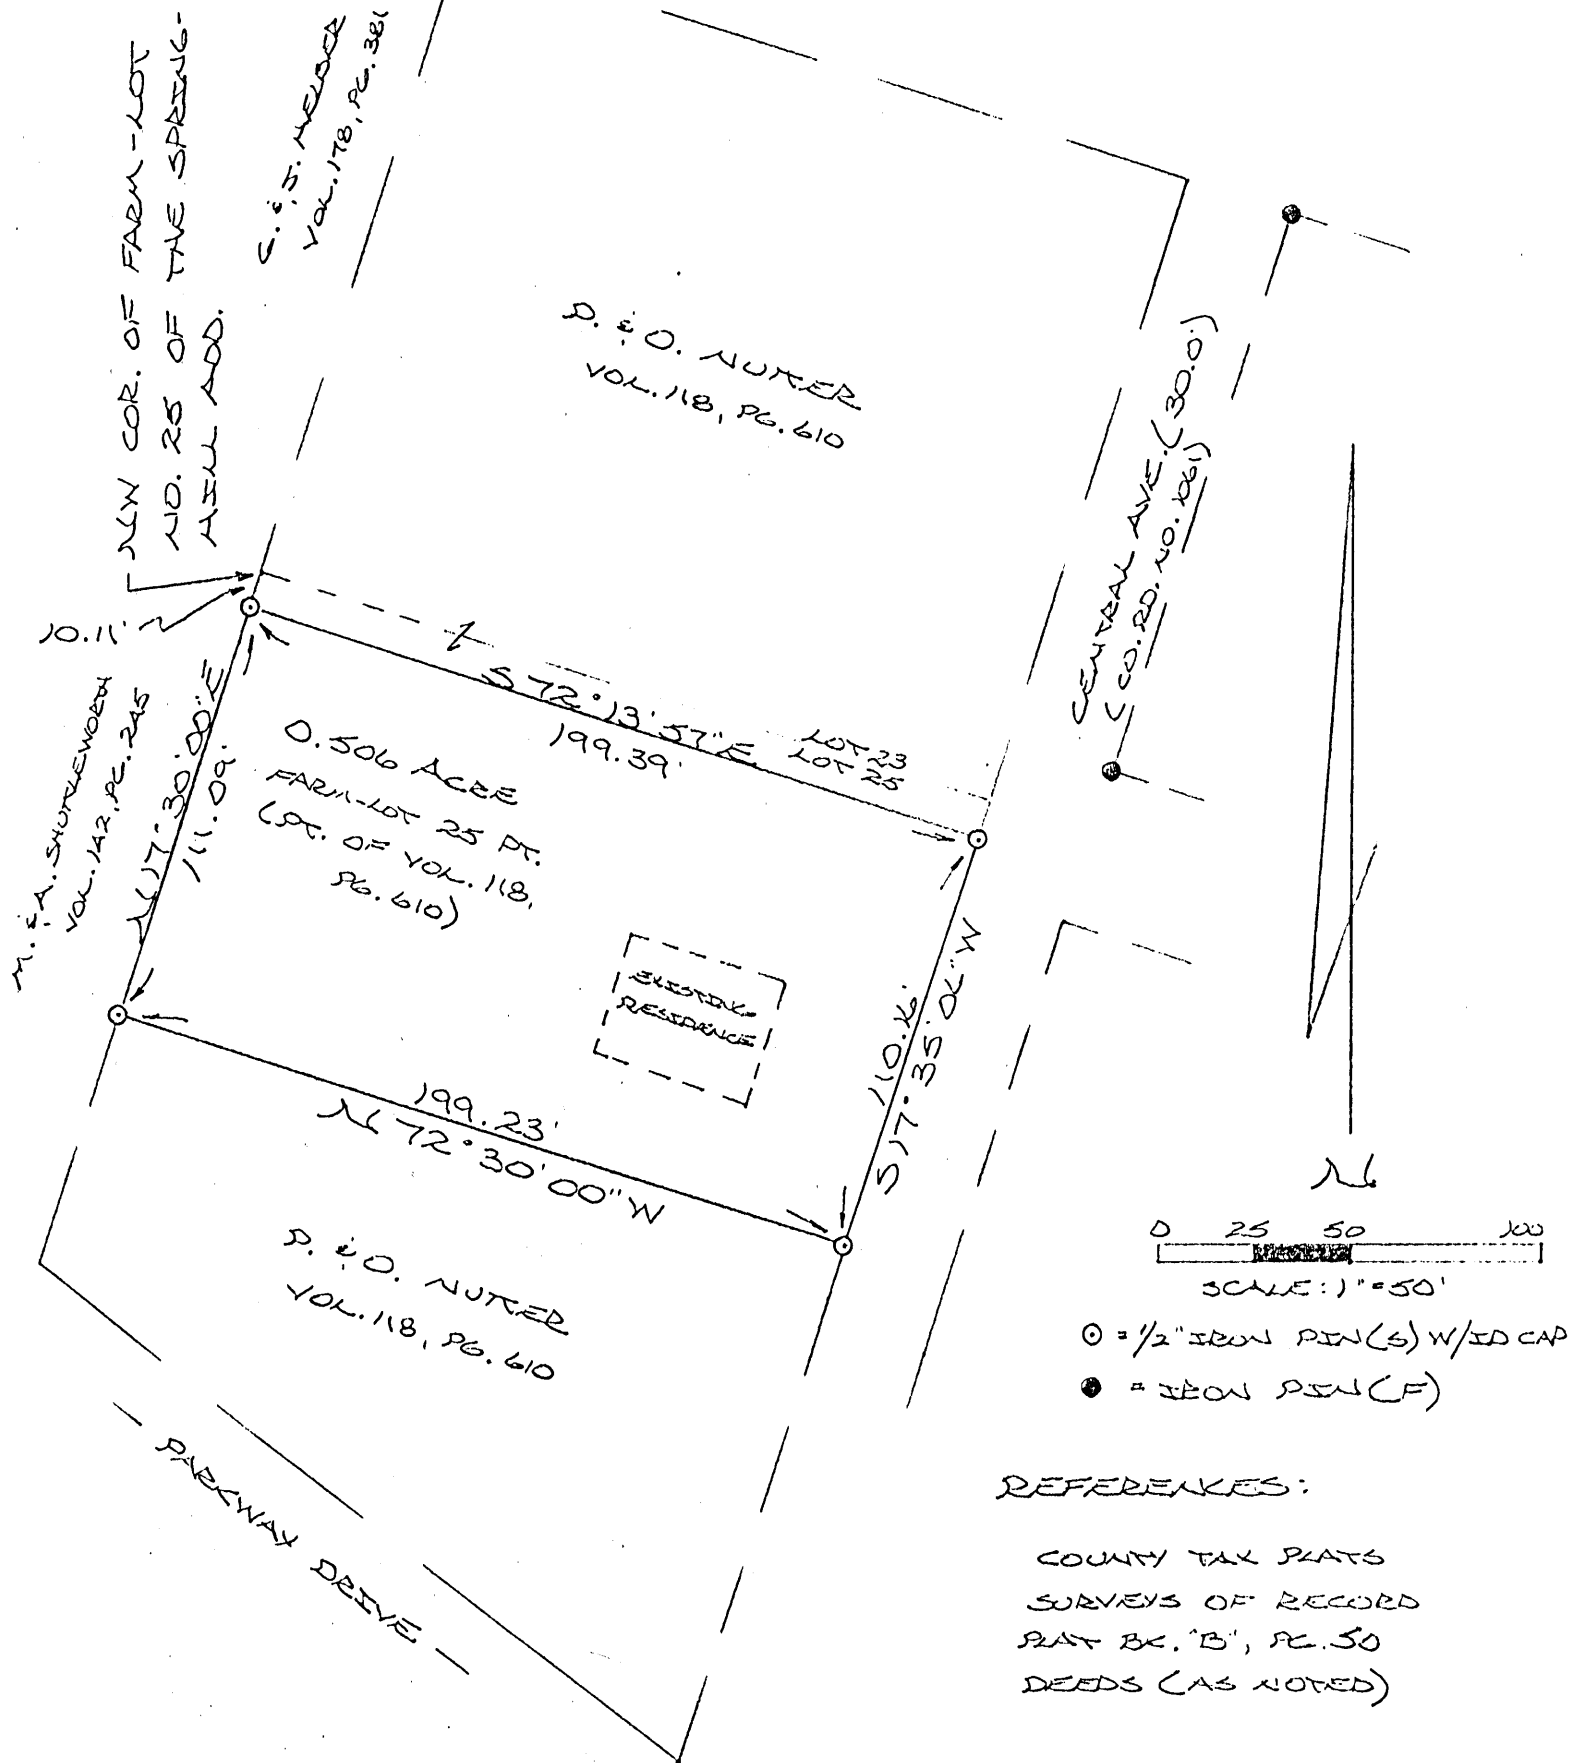 NW COR. OF FARM-LOT
NO. 25 OF THE SPRING-
HILL ADD.
VOL. 178, PG. 381
D. & O. NUTTER
VOL. 118, PG. 610
CENTRAL AVE. (30.0')
(CO. RD. NO. 1061)
10.11'
M. & A. SHUTTLEWORTH
VOL. 142, PG. 245
N 17° 30' 00" E
111.09'
S 72° 13' 57" E
199.39'
LOT 23
LOT 25
0.506 ACRE
FARM-LOT 25 PT.
(PT. OF VOL. 118,
PG. 610)
EXISTING
RESIDENCE
110.16'
S 17° 35' 04" W
199.23'
N 72° 30' 00" W
D. & O. NUTTER
VOL. 118, PG. 610
PARKWAY DRIVE
N
0 25 50 100
SCALE: 1" = 50'
= 1/2" IRON PIN(S) W/ID CAP
= IRON PIN (F)
REFERENCES:
COUNTY TAX PLATS
SURVEYS OF RECORD
PLAT BK. "B", PG. 50
DEEDS (AS NOTED)